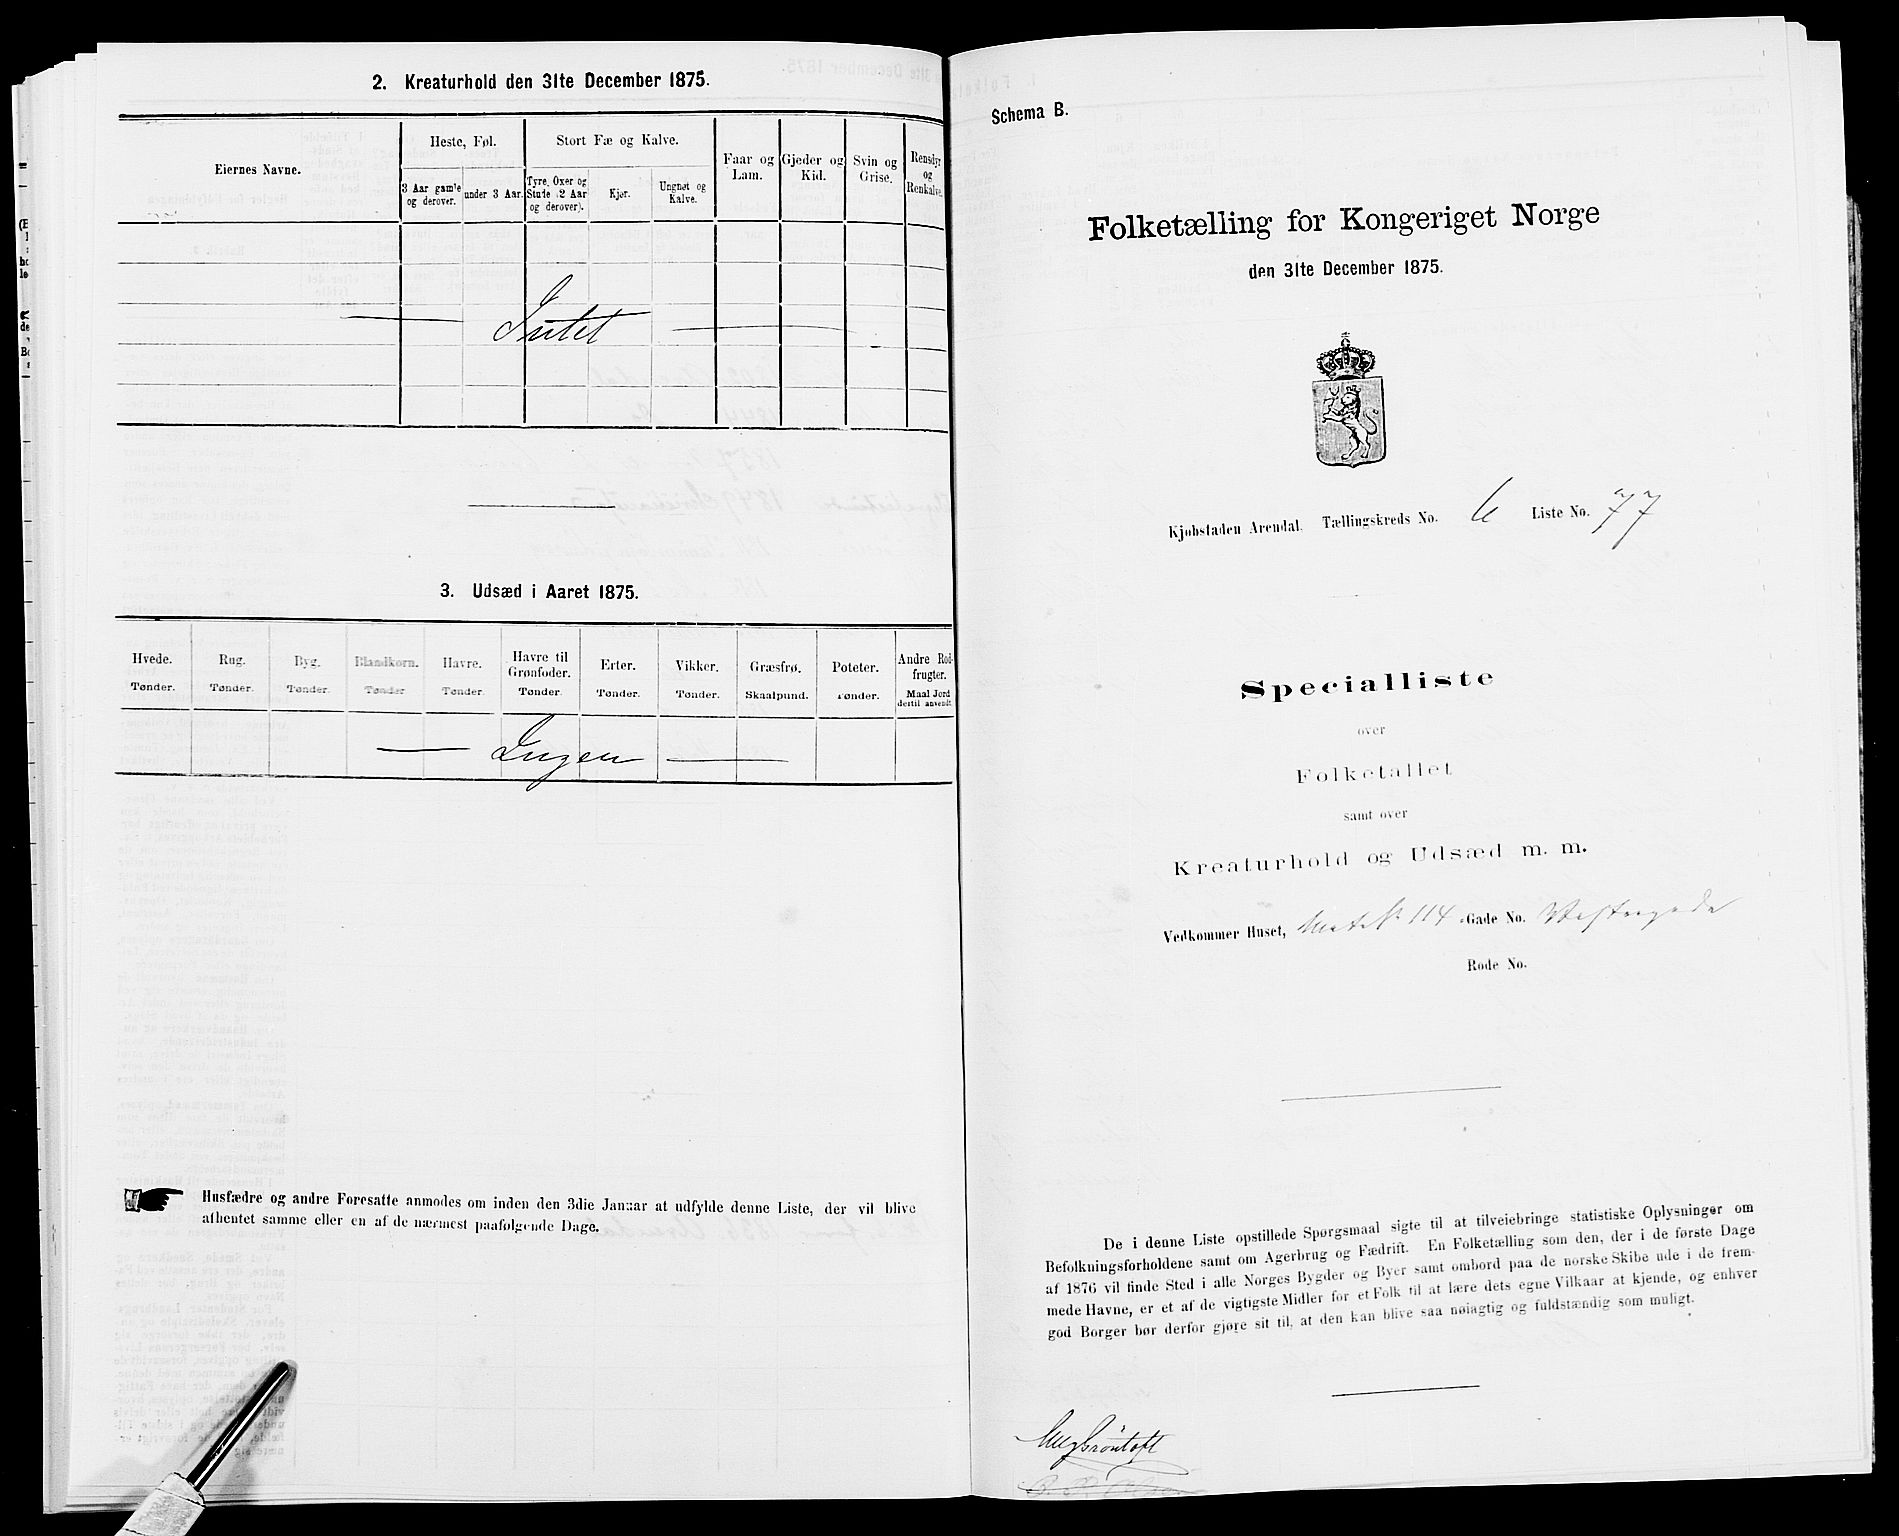 2. Kreaturhold den 31te December 1875.
Eiernes Navne.
Heste, Føl.
Stort Fæ og Kalve.
Faar og Lam.
Gjeder og Kid.
Svin og Grise.
Rensdyr og Renkalve.
3 Aar gamle og derover.
under 3 Aar.
Tyre, Oxer og Stude (2 Aar og derover).
Kjør.
Ungnøt og Kalve.
Intet
3. Udsæd i Aaret 1875.
Hvede. Rug. Byg. Blandkorn. Havre. Havre til Grønfoder. Erter. Vikker. Græsfrø. Poteter. Andre Rodfrugter.
Tønder. Tønder. Tønder. Tønder Tønder. Tønder. Tønder. Tønder. Skaalpund. Tønder. Maal Jord dertil anvendt.
Ingen
Husfædre og andre Foresatte anmodes om inden den 3die Januar at udfylde denne Liste, der vil blive
afhentet samme eller en af de nærmest paafølgende Dage.
Schema B.
Folketælling for Kongeriget Norge
den 31te December 1875.
Kjøbstaden Arendal. Tællingskreds No. 6 Liste No. 77
Specialliste
over
Folketallet
samt over
Kreaturhold og Udsæd m. m.
Vedkommer Huset, Mat. № 114 Gade No. Vestregade
Rode No.
De i denne Liste opstillede Spørgsmaal sigte til at tilveiebringe statistiske Oplysninger om
Befolkningsforholdene samt om Agerbrug og Fædrift. En Folketælling som den, der i de første Dage
af 1876 vil finde Sted i alle Norges Bygder og Byer samt ombord paa de norske Skibe ude i de frem-
mede Havne, er et af de vigtigste Midler for et Folk til at lære dets egne Vilkaar at kjende, og enhver
god Borger bør derfor gjøre sit til, at den kan blive saa nøiagtig og fuldstændig som muligt.